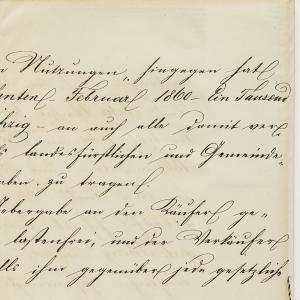 n Nutzungen, hingegen hat
enten Februar 1860 - Ein Tausend
chzig - an auch alle damit ver
s landesfürstlichen und Gemeinde-
aben zu tragen.
Uebergabe an den Käufer ge-
lastenfrei, und der Verkäufer
lls ihm gegenüber jede gesetzliche